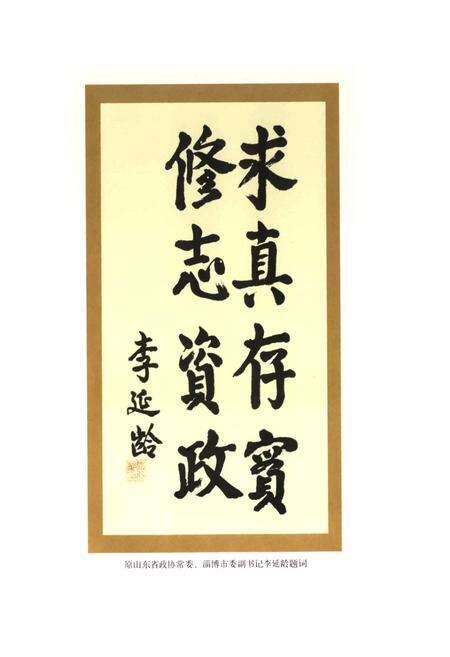 求真存實
修志資政
李延龄
原山东省政协常委、淄博市委副书记李延龄题词